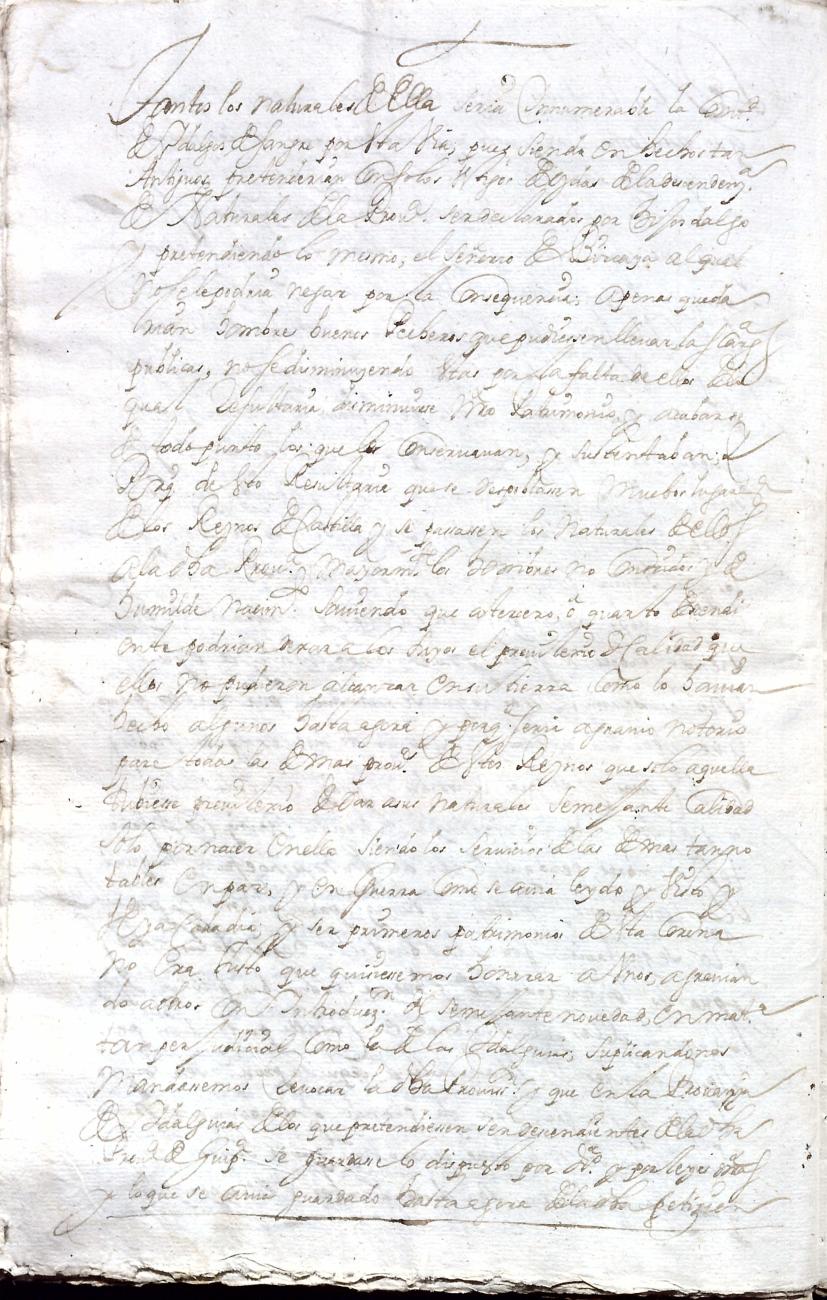 tantos los naturales de Ella seria innumerable la Cant.d
de Ydalgos de sangre por esta Via, pues siendo en hechos tan
Antiguos pretenderian con solos testigos de oydas de la descendenz.a
de Naturales de la Prou.a ser declarados por Hijosdalgo
y pretendiendo lo mismo, el Señorio de Vizcaya al qual
no se le podria negar por la Consequencia; apenas queda
rian hombres buenos Pecheros que pudiessen lleuar las Cargas
publicas, no se disminuyendo estas por la falta de ellos de lo
qual Resultaria disminuirse nro Patrimonio, y acabarse
de todo punto los que los Conseruauan, y sustentaban; y
Porq de esto Resultaria que se despoblasen muchos lugares
de los Reynos de Castilla y se passassen los Naturales dellos
a la dha Prou.a Mayorm.te los hombres no Conocidos y de
humilde nacim.to sauiendo que a tercero, o quarto decendi
ente podrian dexar a los hijos el preuilexio de Calidad que
ellos no pudieron alcanzar en su tierra Como lo hauian
hecho algunos hasta agora y porq seria agrauio notorio
para todas las demas prou.s de estos Reynos que solo aquella
tubiese preuilexio de dar a sus naturales semejante Calidad
solo por nacer en ella siendo los seruicios de las demas tan no
tables en paz, y en Guerra Como se auia leydo y Visto y
Veya cada dia, y ser primeros patrimonios de esta Corona
no era Justo que quisiesemos honrrar a Unos, agrauian
do a otros con Introduz.n de semejante nouedad, en mat.a
tan perjudicial Como la de las Ydalguias, suplicandonos
Mandasemos Reuocar la dha Prouis.n y que en la Prouanza
de Ydalguias de los que pretendiessen ser descendientes de la dha
Prou.a de Guip.a se guardase lo dispuesto por dro y por leyes dhas
y lo que se auia guardado hasta agora de la dha petizion